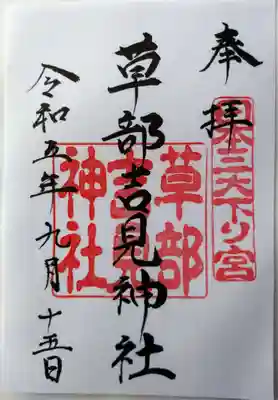 奉拝
日本三大下り宮
草部吉見神社
草部吉見神社
令和五年九月十五日